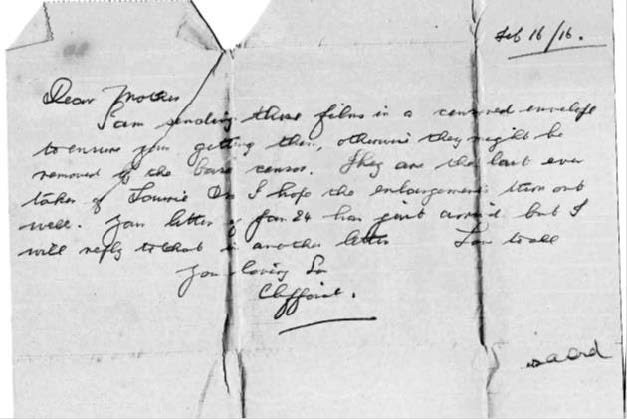 Feb 16/16.
Dear Mother
I am sending these films in a censored envelope
to ensure you getting them, otherwise they might be
removed by the base censor. They are the last ever
taken of I hope the enlargements turn out
well. Your letter of Jan 24 has just arrived but I
will reply to that in another letter
Your loving Son
Clifford.